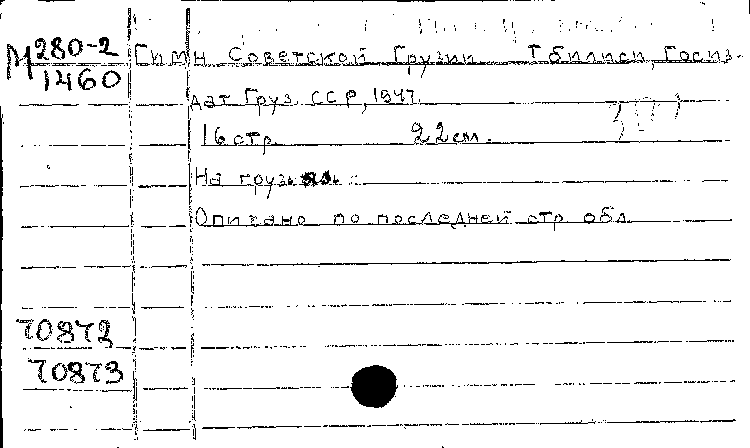 М 280-2
1460
Гимн Советской Грузии Тбилиси, Госиз-
дат Груз ССР, 1947.
16 стр 22 см.
На груз. яз.
Описано по последней стр обл
70872
70873